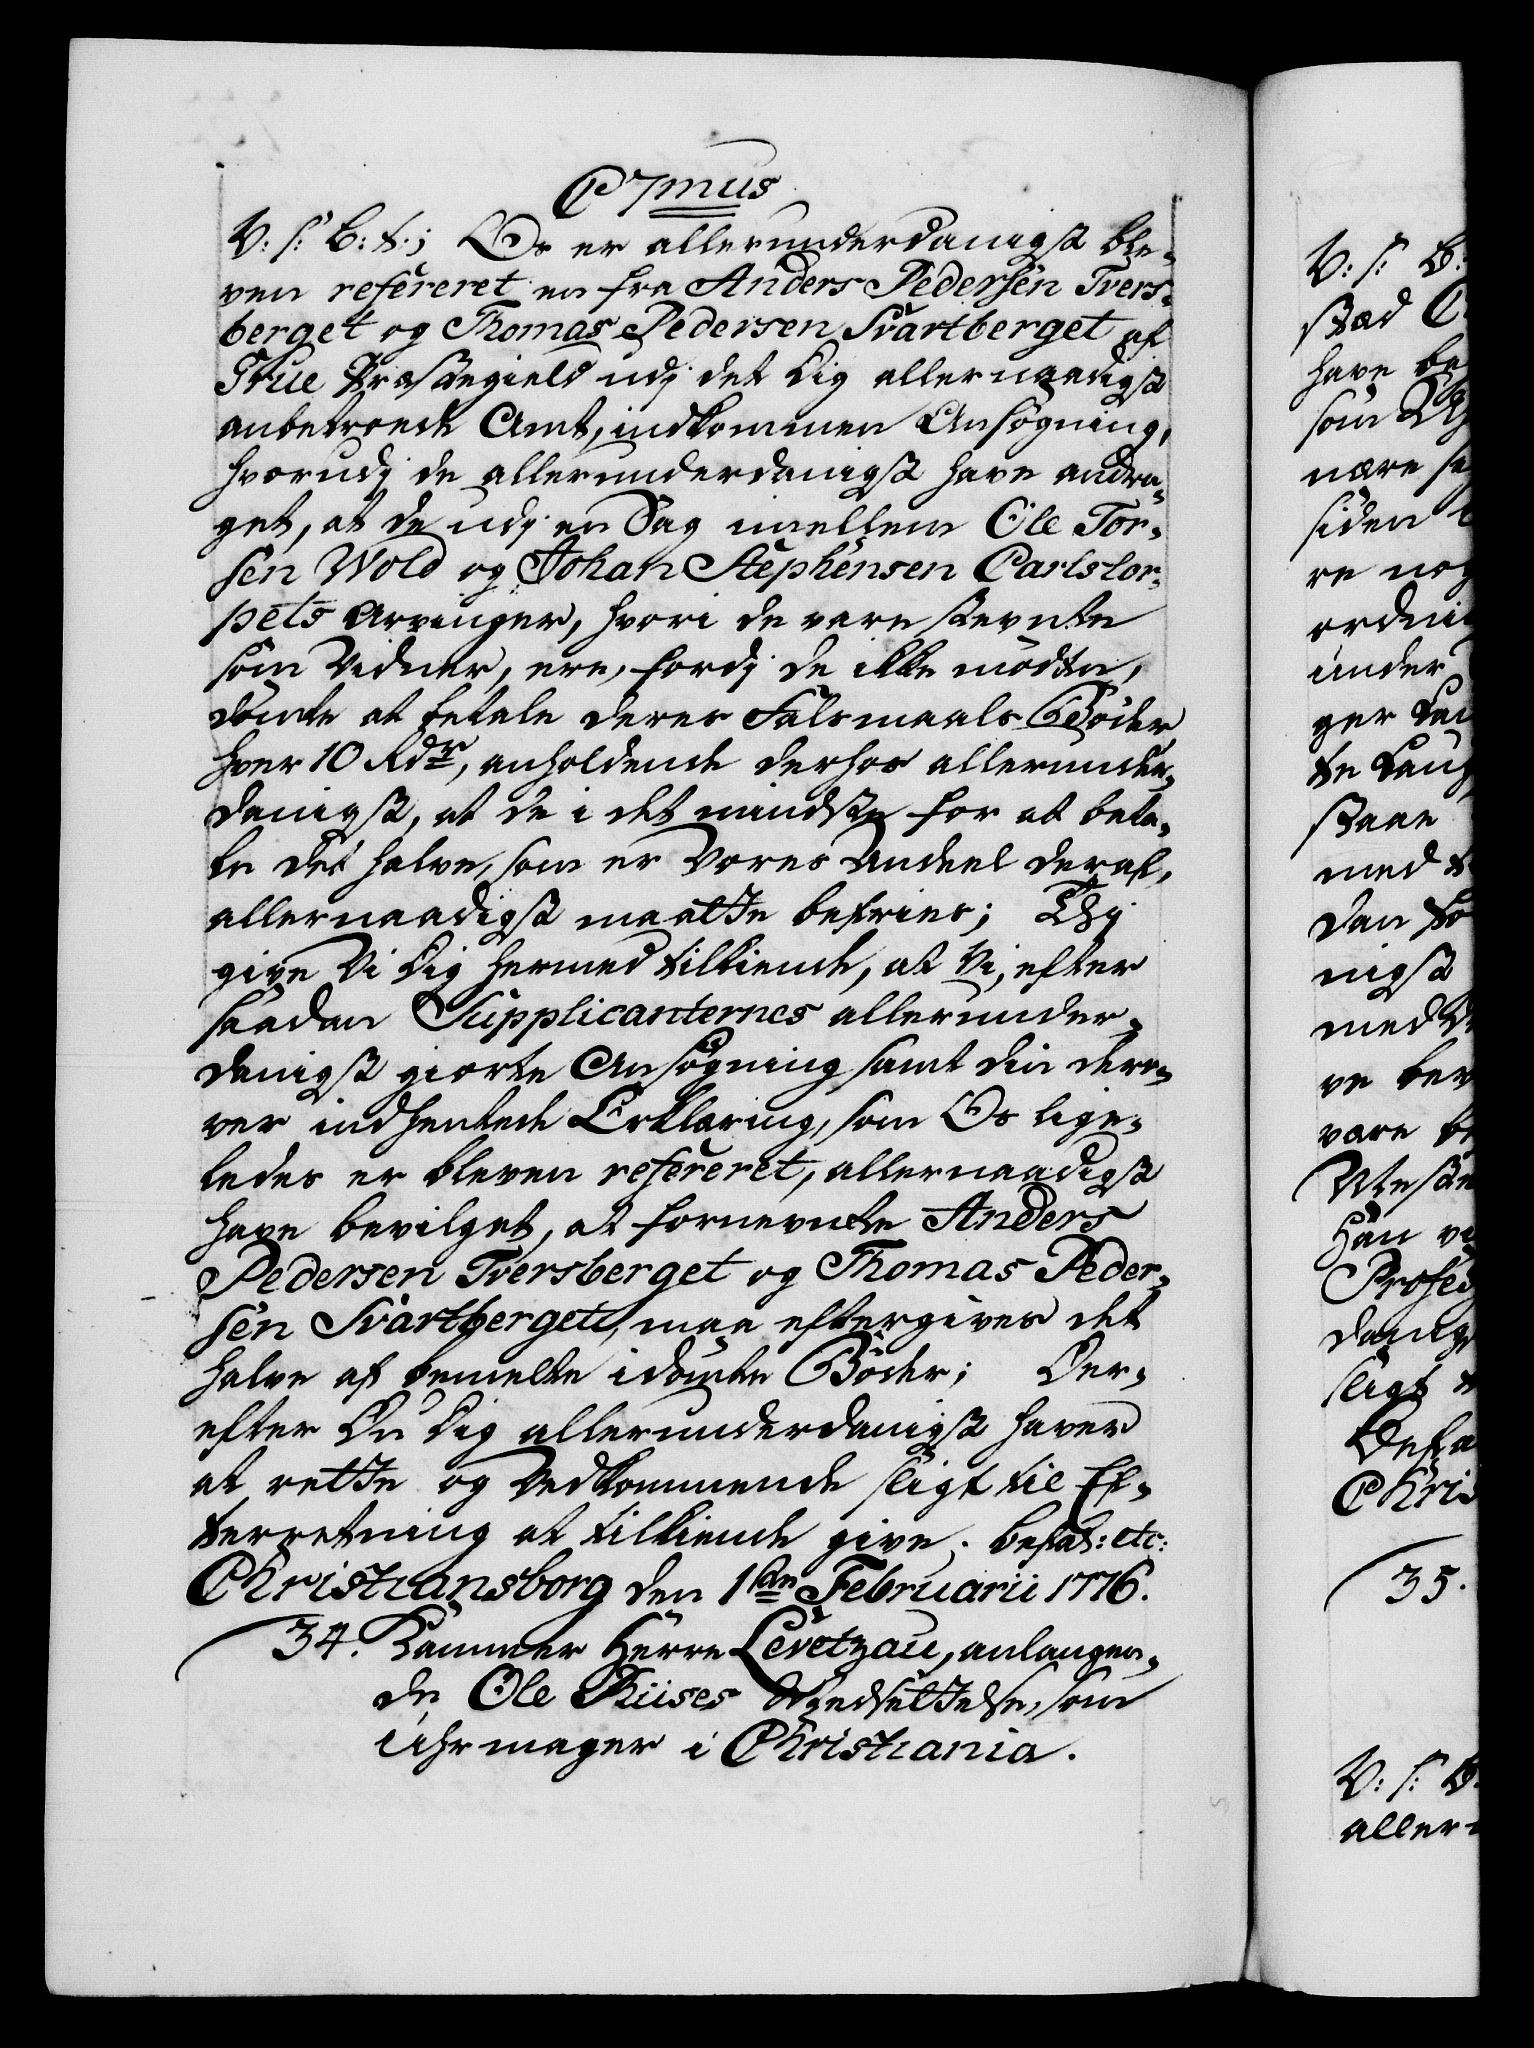 C 7mus
V: s: B: t:; Os er allerunderdanigst ble-
ven refereret en fra Anders Pedersen Tvers-
berget og Thomas Pedersen Svartberget af
True Præstegield udj det Dig allernaadigst
anbetroede Amt, indkommen Ansøgning,
hvorudj de allerunderdanigst have andra-
get, at de udj en Sag imellem Ole Tor-
sen Wold og Johan Stephensen Carlstor-
pets Arvinger, hvori de vare stevnte
som Vidner, ere, fordj de ikke mødte,
dømte at betale deres Falsmaals Bøder
hver 10 Rdr, anholdende derhos allerunder-
danigst, at de i det mindste for at beta-
le det halve, som er Vores Andeel deraf,
allernaadigst maatte befries; Thj
give Vi Dig hermed tilkiende, at Vi, efter
saadan Supplicanternes allerunder-
danigst giorte Ansøgning samt din dero-
ver indhentede Erklæring, som Os lige-
ledes er bleven refereret, allernaadigst
have bevilget, at fornevnte Anders
Pedersen Tversberget og Thomas Peder-
sen Svartberget, maa eftergives det
halve af bemelte idømte Bøder; Der-
efter Du Dig allerunderdanigst haver
at rette og Vedkommende sligt til Ef-
terretning at tilkiende give. Befal: etc:
Christiansborg den 1ste Februarii 1776.
34. Kammer Herre Levetzau, anlangen-
de Ole Riises Nedsettelse, som
Uhrmager i Christiania.
V: s: B:
stæd
have be
som
være
siden
re nog
ordni
under
ger
te
staae
med
dan
nigst
med
ve
vare
Meste
han
danig
sligt
Befa
Chris
35.
V: s: B
aller-